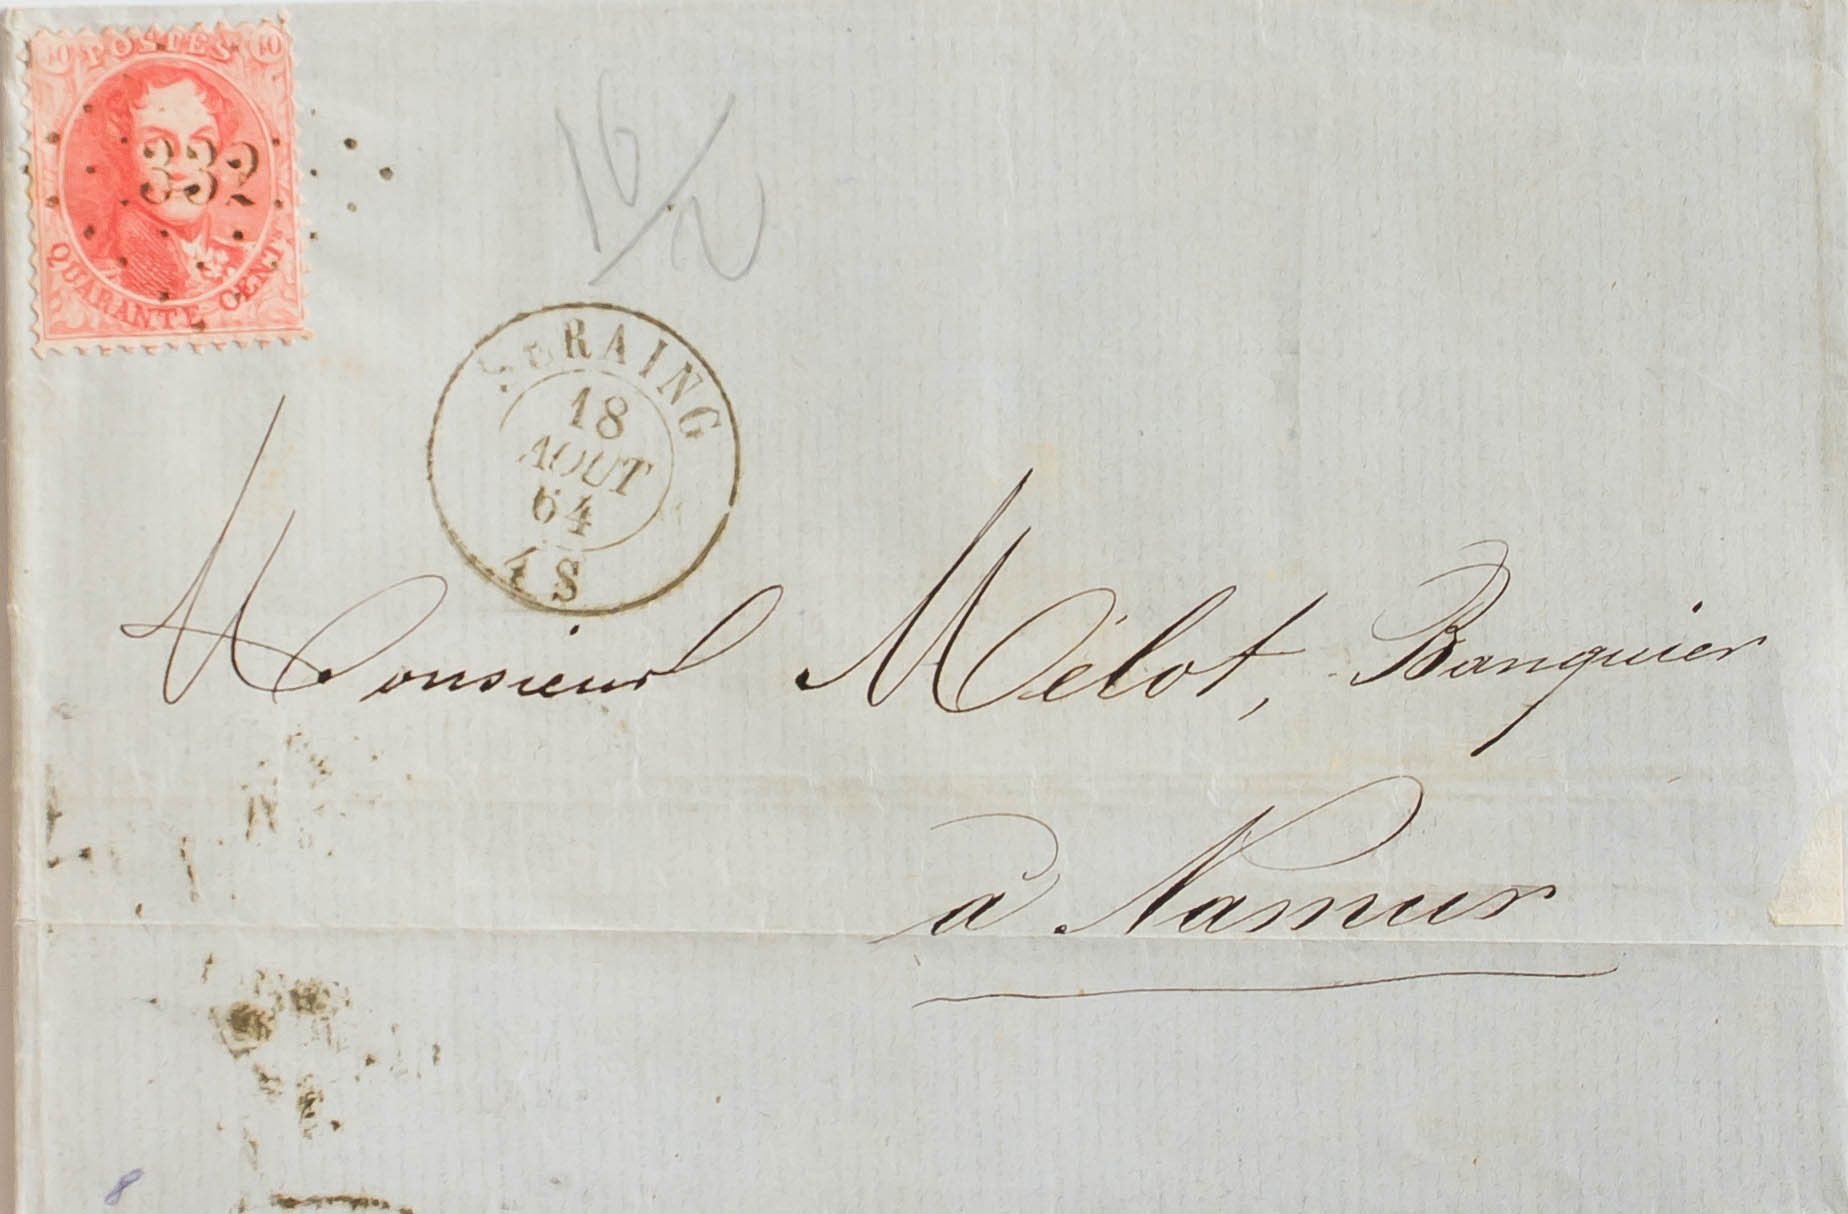 40 POSTES 40
332
QUARANTE CENTS
16/2
SERAING
18
AOUT
64
4 S
Monsieur Mélot, Banquier
à Namur
8